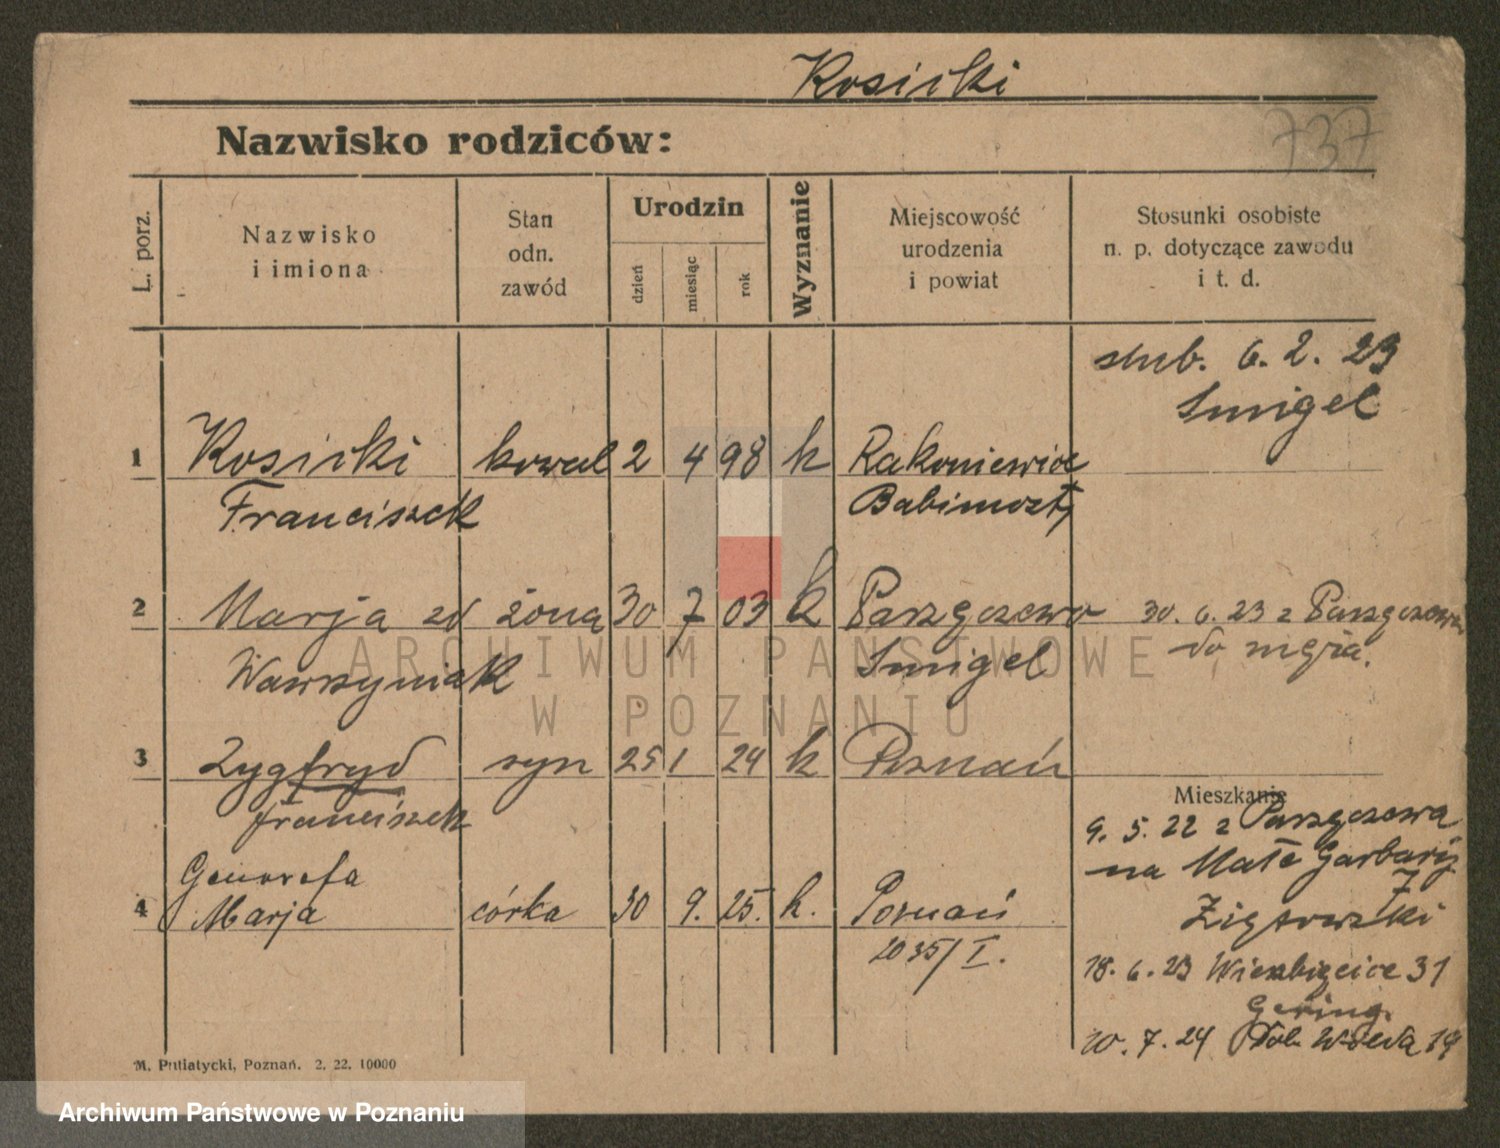 Kosicki
Nazwisko rodziców:
737
L. porz.
Nazwisko
i imiona
Stan
odn.
zawód
Urodzin
dzień
miesiąc
rok
Wyznanie
Miejscowość
urodzenia
i powiat
Stosunki osobiste
n. p. dotyczące zawodu
i t. d.
ślub. 6. 2. 23
Smigel
1 Kosicki kowal 2 4 98 k Rakoniewice
Franciszek Babimozty
2 Marja zd żona 30 7 03 k Parzgczewo 30. 6. 23 z Parzgczewa
Wawrzyniak Smigel do męża.
3 Zygfryd syn 25 1 24 k Poznań
Franciszek
Mieszkanie
9. 5. 22 z Parzgczewa
na Małe Garbary
7
Genowefa
4 Marja córka 30 9. 25. k. Poznań
2035/I.
18. 6. 23 Wierzbięcice 31
Gering.
10. 7. 24 Dol. Wilda 19
M. Putiatycki, Poznań. 2. 22. 10000
ARCHIWUM PAŃSTWOWE
W POZNANIU
Archiwum Państwowe w Poznaniu